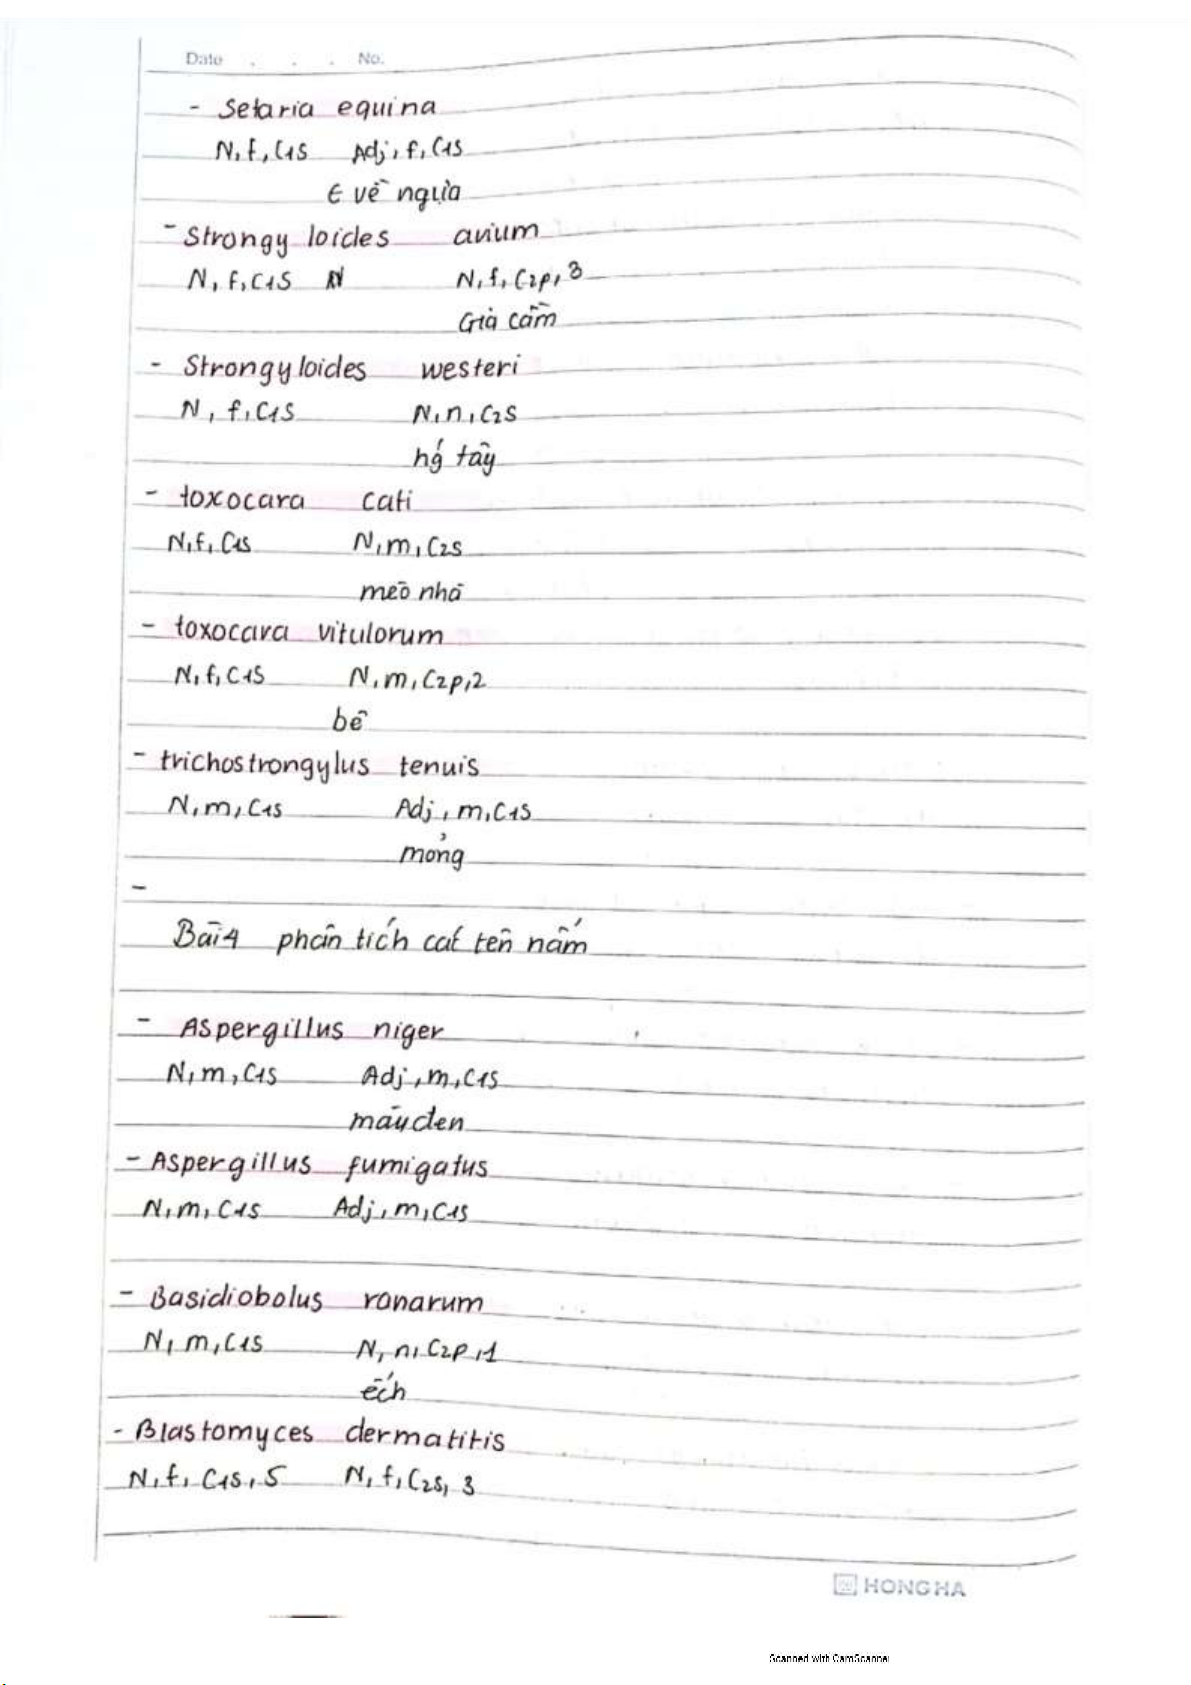 Date . . . No.
- Setaria equina
N, f, C1S Adj, f, C1S
∈ về ngựa
- Strongy loides avium
N, f, C1S N, f, C2p, 3
Gia cầm
- Strongyloides westeri
N, f, C1S N, n, C2S
hướng tây
- toxocara cati
N, f, C1S N, m, C2S
mèo nhà
- toxocara vitulorum
N, f, C1S N, m, C2p, 2
bê
- trichostrongylus tenuis
N, m, C1S Adj, m, C1S
mỏng
-
Bài 4 phân tích các tên nấm
- Aspergillus niger
N, m, C1S Adj, m, C1S
màu đen
- Aspergillus fumigatus
N, m, C1S Adj, m, C1S
- Basidiobolus ranarum
N, m, C1S N, n, C2p, 1
ếch
- Blastomyces dermatitis
N, f, C1S, 5 N, f, C2S, 3
HONG HA
Scanned with CamScanner